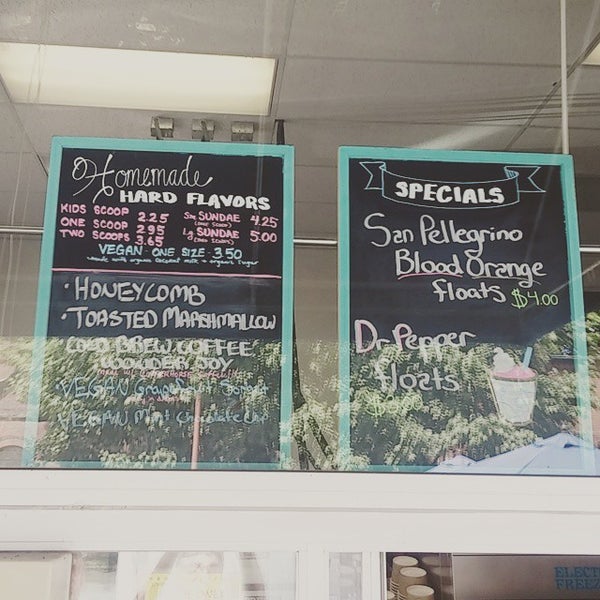 Homemade
HARD FLAVORS
KIDS SCOOP 2.25
ONE SCOOP 2.95
TWO SCOOPS 3.65
Sm SUNDAE 4.25
(ONE SCOOP)
Lg SUNDAE 5.00
(TWO SCOOPS)
VEGAN - ONE SIZE 3.50
made with organic coconut milk + organic sugar
• HONEYCOMB
• TOASTED MARSHMALLOW
COLD BREW COFFEE
WONDER JOY
VEGAN Grapefruit Sorbet
VEGAN Mint Chocolate Chip
SPECIALS
San Pellegrino
Blood Orange
floats $4.00
Dr Pepper
floats
ELECT
FREEZ